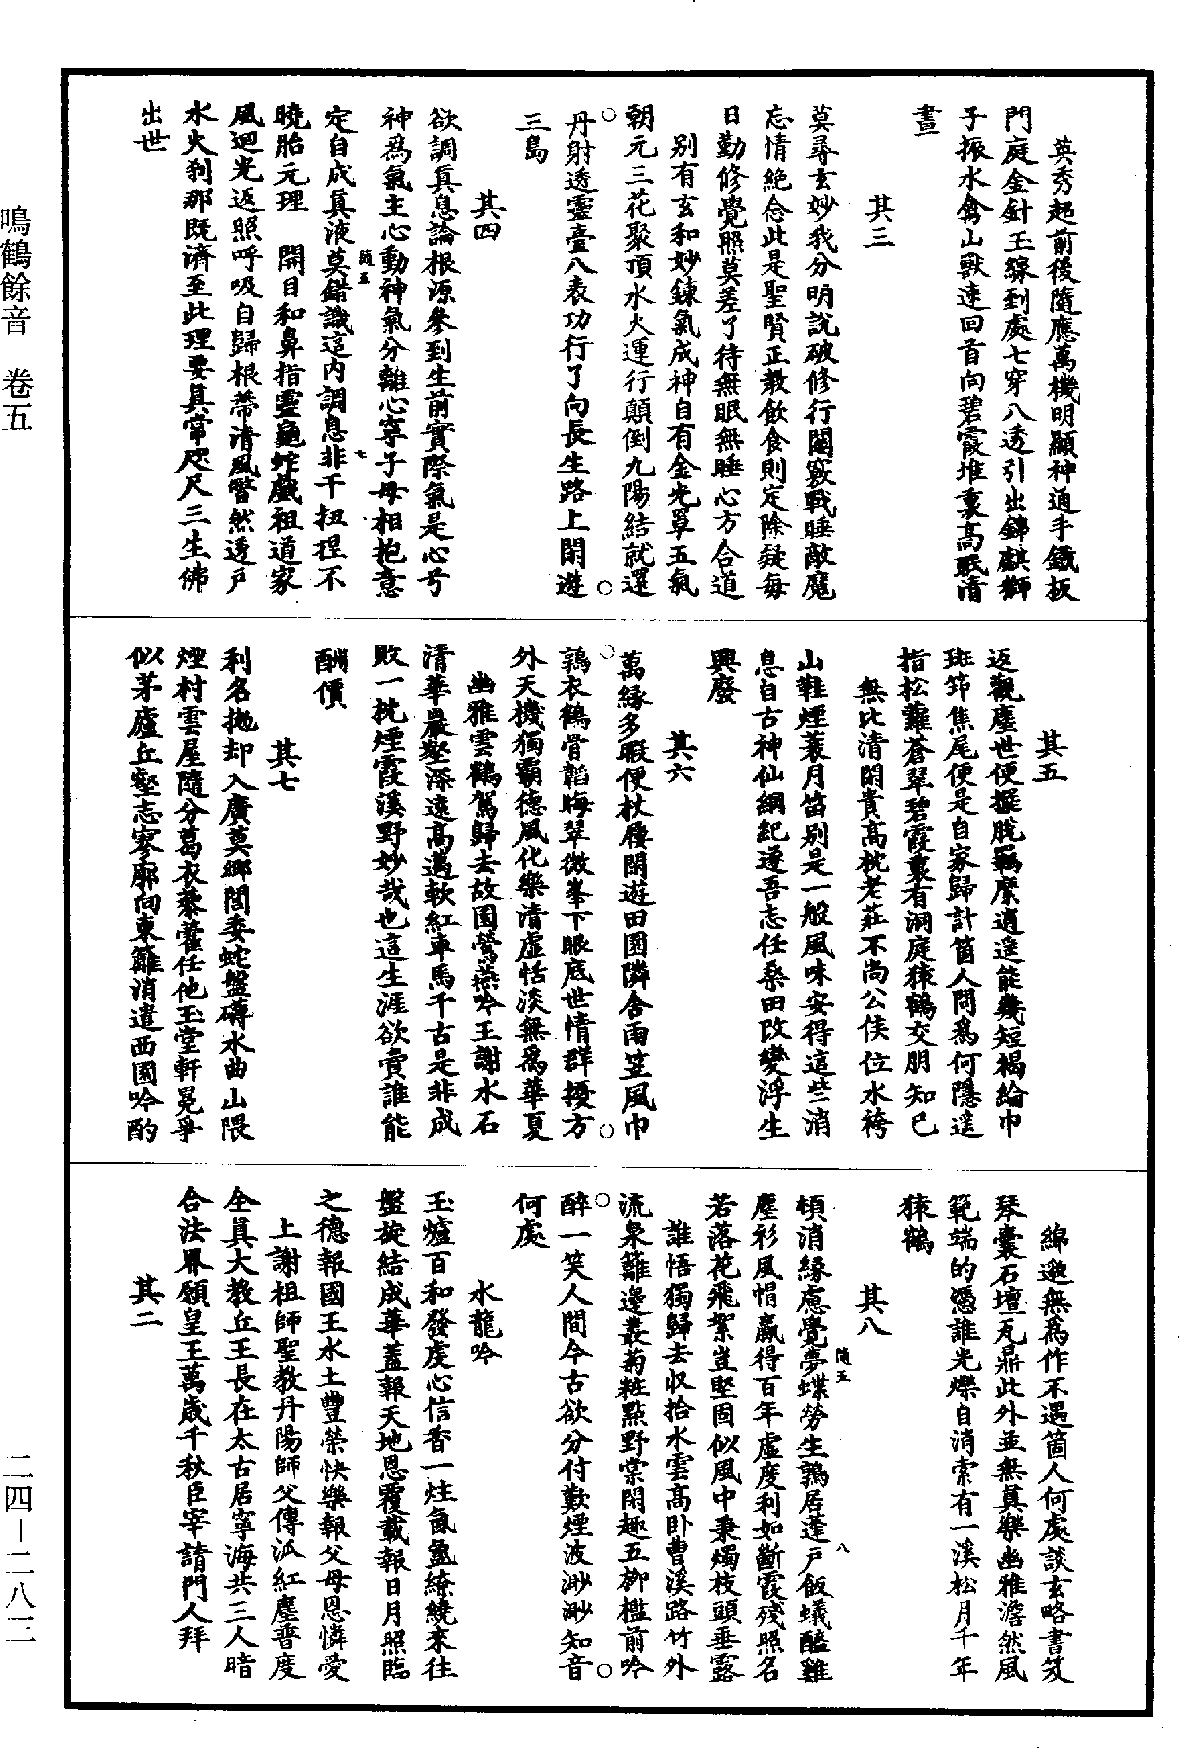 英秀超前後隨應萬機明顯神通手鐵板
門庭金針玉線到處七穿八透引出錦麒獅
子振水禽山獸速回首向碧霞堆裏高眠清
晝
其三
莫尋玄妙我分明說破修行關竅戰睡敵魔
忘情絕念此是聖賢正教飲食則定除疑每
日勤修覺照莫差了待無眠無睡心方合道
別有玄和妙鍊氣成神自有金光罩五氣
朝元三花聚頂水火運行顛倒九陽結就還
丹射透靈臺八表功行了向長生路上閑遊
三島
其四
欲調真息論根源參到生前實際氣是心兮
神為氣主心動神氣分離心寧子母相抱意
定自成真液莫錯識這內調息非干扭捏不
隨五
七
曉胎元理 開目和鼻指靈龜蛇戲祖道家
風迴光返照呼吸自歸根蒂清風瞥然透戶
水火剎那既濟至此理要真常咫尺三生佛
出世
其五
返觀塵世便擺脫羈縻逍遙能幾短褐綸巾
斑笻焦尾便是自家歸計箇人問為何隱遙
指松蘿蒼翠碧霞裏有洞庭猿鶴交朋知已
無比清閑貴高枕老莊不尚公侯位水袴
山鞋煙蓑月笛別是一般風味安得這些消
息自古神仙綱紀遂吾志任桑田改變浮生
興廢
其六
萬緣多暇便杖屨閑遊田園隣舍雨笠風巾
鶉衣鶴骨韜晦翠微峯下眼底世情群擾方
外天機獨霸德風化樂清虛恬淡無為華夏
幽雅雲鶴駕歸去故園鶯燕吟王謝水石
清華巖壑深遠高邁軟紅車馬千古是非成
敗一枕煙霞溪野妙哉也這生涯欲賣誰能
酬價
其七
利名拋却入廣莫鄉閭委蛇盤礴水曲山隈
煙村雲屋隨分葛衣藜藿任他玉堂軒冕爭
似茅廬丘壑志寥廓向東籬消遣西園吟酌
綿邈無為作不遇箇人何處談玄略書笈
琴囊石壇瓦鼎此外並無真樂幽雅澹然風
範端的憑誰光爍自消索有一溪松月千年
猿鶴
其八
頓消緣慮覺夢蝶勞生鶉居蓬戶飯蟻醯雞
隨五
八
塵衫風帽贏得百年虛度利如斷霞殘照名
若落花飛絮豈堅固似風中秉燭枝頭垂露
誰悟獨歸去收拾水雲高臥曹溪路竹外
流泉籬邊叢菊粧點野棠閑趣五柳檻前吟
醉一笑人間今古欲分付歎煙波渺渺知音
何處
水龍吟
玉爐百和發虔心信香一炷氤氳繚繞來往
盤旋結成華蓋報天地恩覆載報日月照臨
之德報國王水土豐榮快樂報父母恩憐愛
上謝祖師聖教丹陽師父傳流紅塵普度
全真大教丘王長在太古居寧海共三人暗
合法界願皇王萬歲千秋臣宰請門人拜
其二
鳴鶴餘音 卷五
二四—二八二